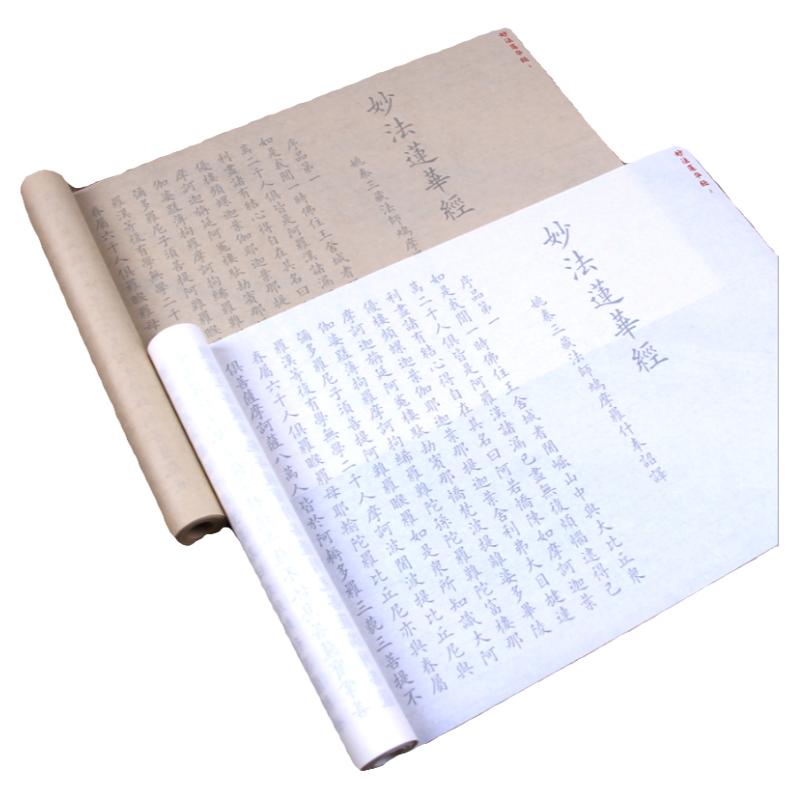 妙法蓮華經
妙法蓮華經
姚秦三藏法師鳩摩
序品第一
如是我聞一時佛住王舍城耆
萬二千人俱皆是阿羅漢諸漏
利盡諸有結心得自在其名曰
優樓頻螺迦葉伽耶迦葉那提
摩訶迦旃延阿㝹樓馱劫賓那
伽婆蹉薄拘羅摩訶拘絺羅難
彌多羅尼子須菩提阿難羅
羅漢等復有學無學二千
眷屬六千人俱羅睺羅母
妙法蓮華經
妙法蓮華經
姚秦三藏法師鳩摩羅什奉詔譯
序品第一
如是我聞一時佛住王舍城耆闍崛山中與大比丘眾
萬二千人俱皆是阿羅漢諸漏已盡無復煩惱逮得己
利盡諸有結心得自在其名曰阿若憍陳如摩訶迦葉
優樓頻螺迦葉伽耶迦葉那提迦葉舍利弗大目揵連
摩訶迦旃延阿㝹樓馱劫賓那憍梵波提離婆多畢陵
伽婆蹉薄拘羅摩訶拘絺羅難陀孫陀羅難陀富樓那
彌多羅尼子須菩提阿難羅睺羅如是眾所知識大阿
羅漢等復有學無學二千人摩訶波闍波提比丘尼與
眷屬六千人俱羅睺羅母耶輸陀羅比丘尼亦與眷屬
俱菩薩摩訶薩八萬人皆於阿耨多羅三藐三菩提不